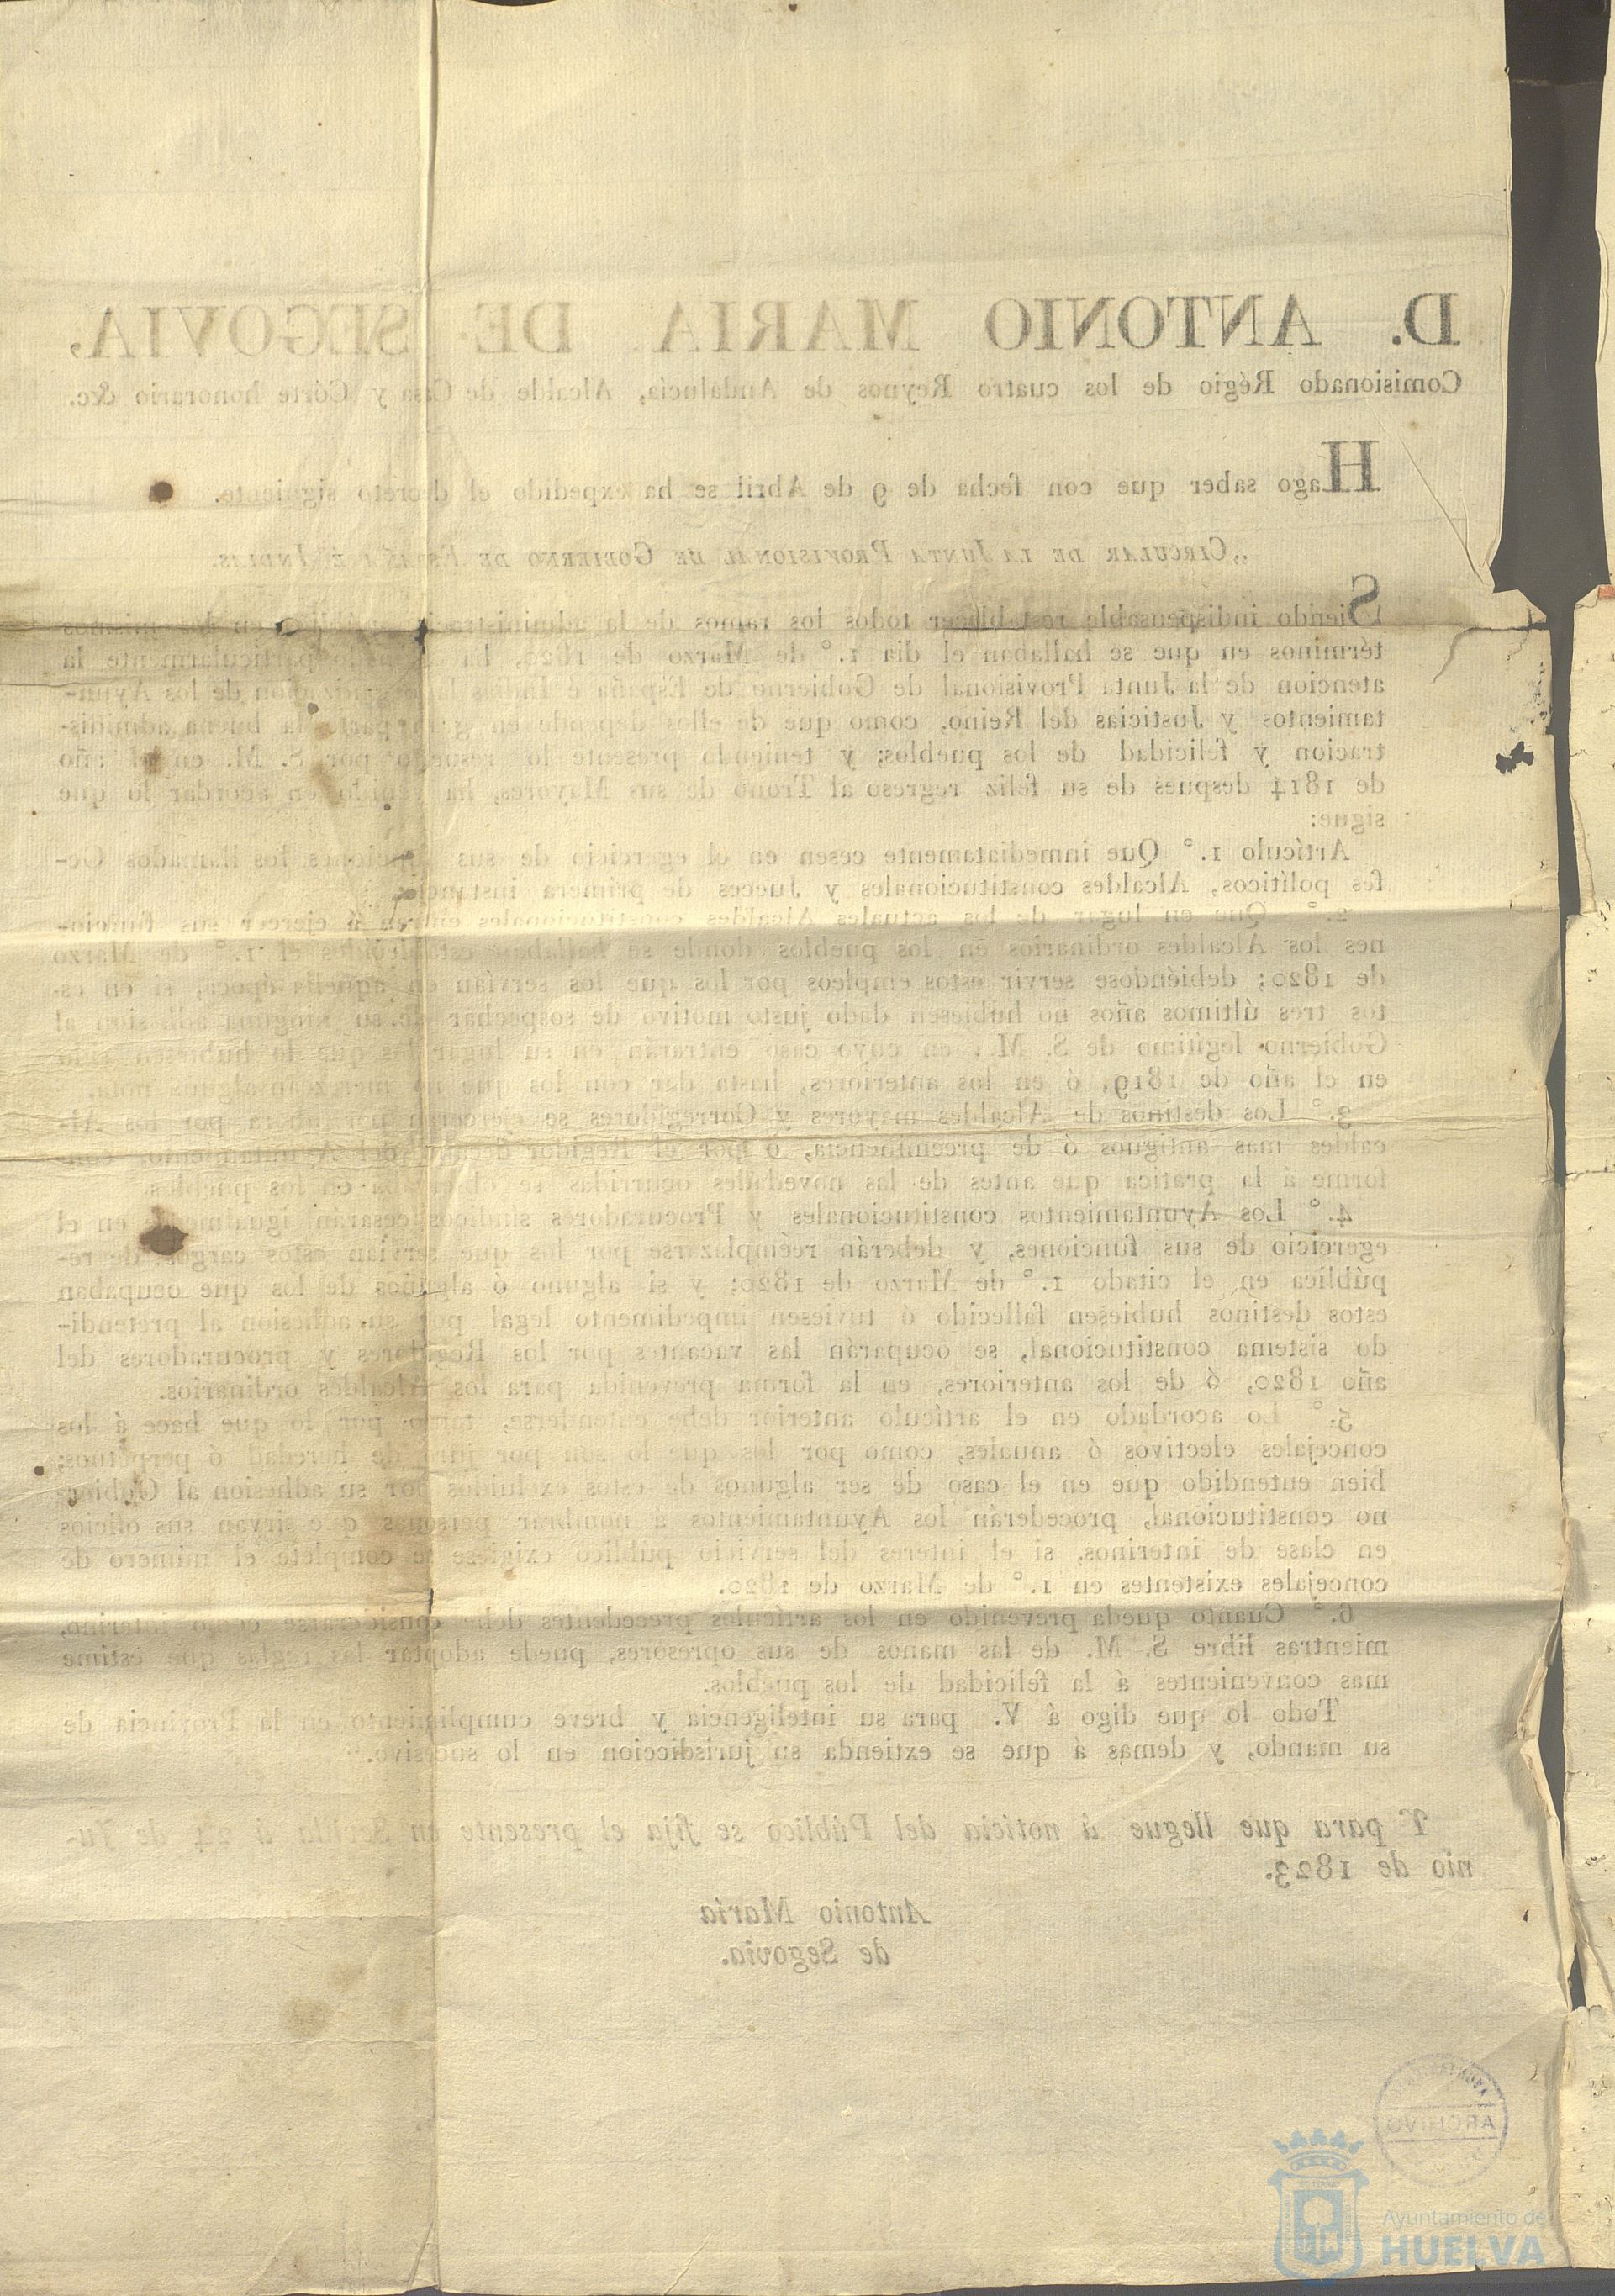 D. ANTONIO MARIA DE SEGOVIA,
Comisionado Régio de los cuatro Reynos de Andalucía, Alcalde de Casa y Córte honorario &c.
Hago saber que con fecha de 9 de Abril se ha expedido el decreto siguiente.
„CIRCULAR DE LA JUNTA PROVISIONAL DE GOBIERNO DE ESPAÑA É INDIAS.
Siendo indispensable restablecer todos los ramos de la administracion pública en los mismos
términos en que se hallaban el dia 1.° de Marzo de 1820, ha particularmente la
atencion de la Junta Provisional de Gobierno de España é Indias la organizacion de los Ayun-
tamientos y Justicias del Reino, como que de ellos depende en gran parte la buena adminis-
tracion y felicidad de los pueblos; y teniendo presente lo resuelto por S. M. en el año
de 1814 despues de su feliz regreso al Trono de sus Mayores, ha venido en acordar lo que
sigue:
Artículo 1.° Que inmediatamente cesen en el egercicio de sus funciones los llamados Ge-
fes políticos, Alcaldes constitucionales y Jueces de primera instancia.
2.° Que en lugar de los actuales Alcaldes constitucionales entren á ejercer sus funcio-
nes los Alcaldes ordinarios en los pueblos donde se hallaban establecidos el 1.° de Marzo
de 1820; debiéndose servir estos empleos por los que los servían en aquella época, si en es-
tos tres últimos años no hubiesen dado justo motivo de sospechar de su ninguna adhesion al
Gobierno legítimo de S. M.; en cuyo caso entrarán en su lugar los que lo hubiesen sido
en el año de 1819, ó en los anteriores, hasta dar con los que no merezcan alguna nota.
3.° Los destinos de Alcaldes mayores y Corregidores se ejercerán por ahora por los Al-
caldes mas antiguos ó de preeminencia, ó por el Regidor decano del Ayuntamiento, con-
forme á la prática que antes de las novedades ocurridas se observaba en los pueblos.
4.° Los Ayuntamientos constitucionales y Procuradores síndicos cesarán igualmente en el
egercicio de sus funciones, y deberán reemplazarse por los que servían estos cargos de re-
pública en el citado 1.° de Marzo de 1820; y si alguno ó algunos de los que ocupaban
estos destinos hubiesen fallecido ó tuviesen impedimento legal por su adhesion al pretendi-
do sistema constitucional, se ocuparán las vacantes por los Regidores y procuradores del
año 1820, ó de los anteriores, en la forma prevenida para los Alcaldes ordinarios.
5.° Lo acordado en el artículo anterior debe entenderse, tanto por lo que hace á los
concejales electivos ó anuales, como por los que lo son por juro de heredad ó perpétuos;
bien entendido que en el caso de ser algunos de estos excluidos por su adhesion al Gobier-
no constitucional, procederán los Ayuntamientos á nombrar personas que sirvan sus oficios
en clase de interinos, si el interes del servicio público exigiese se complete el número de
concejales existentes en 1.° de Marzo de 1820.
6.° Cuanto queda prevenido en los artículos precedentes debe considerarse como interino,
mientras libre S. M. de las manos de sus opresores, puede adoptar las reglas que estime
mas convenientes á la felicidad de los pueblos.
Todo lo que digo á V. para su inteligencia y breve cumplimiento en la Provincia de
su mando, y demas á que se extienda su jurisdiccion en lo sucesivo."
Y para que llegue á noticia del Público se fija el presente en Sevilla á 24 de Ju-
nio de 1823.
Antonio María
de Segovia.
ARCHIVO
Ayuntamiento de
HUELVA